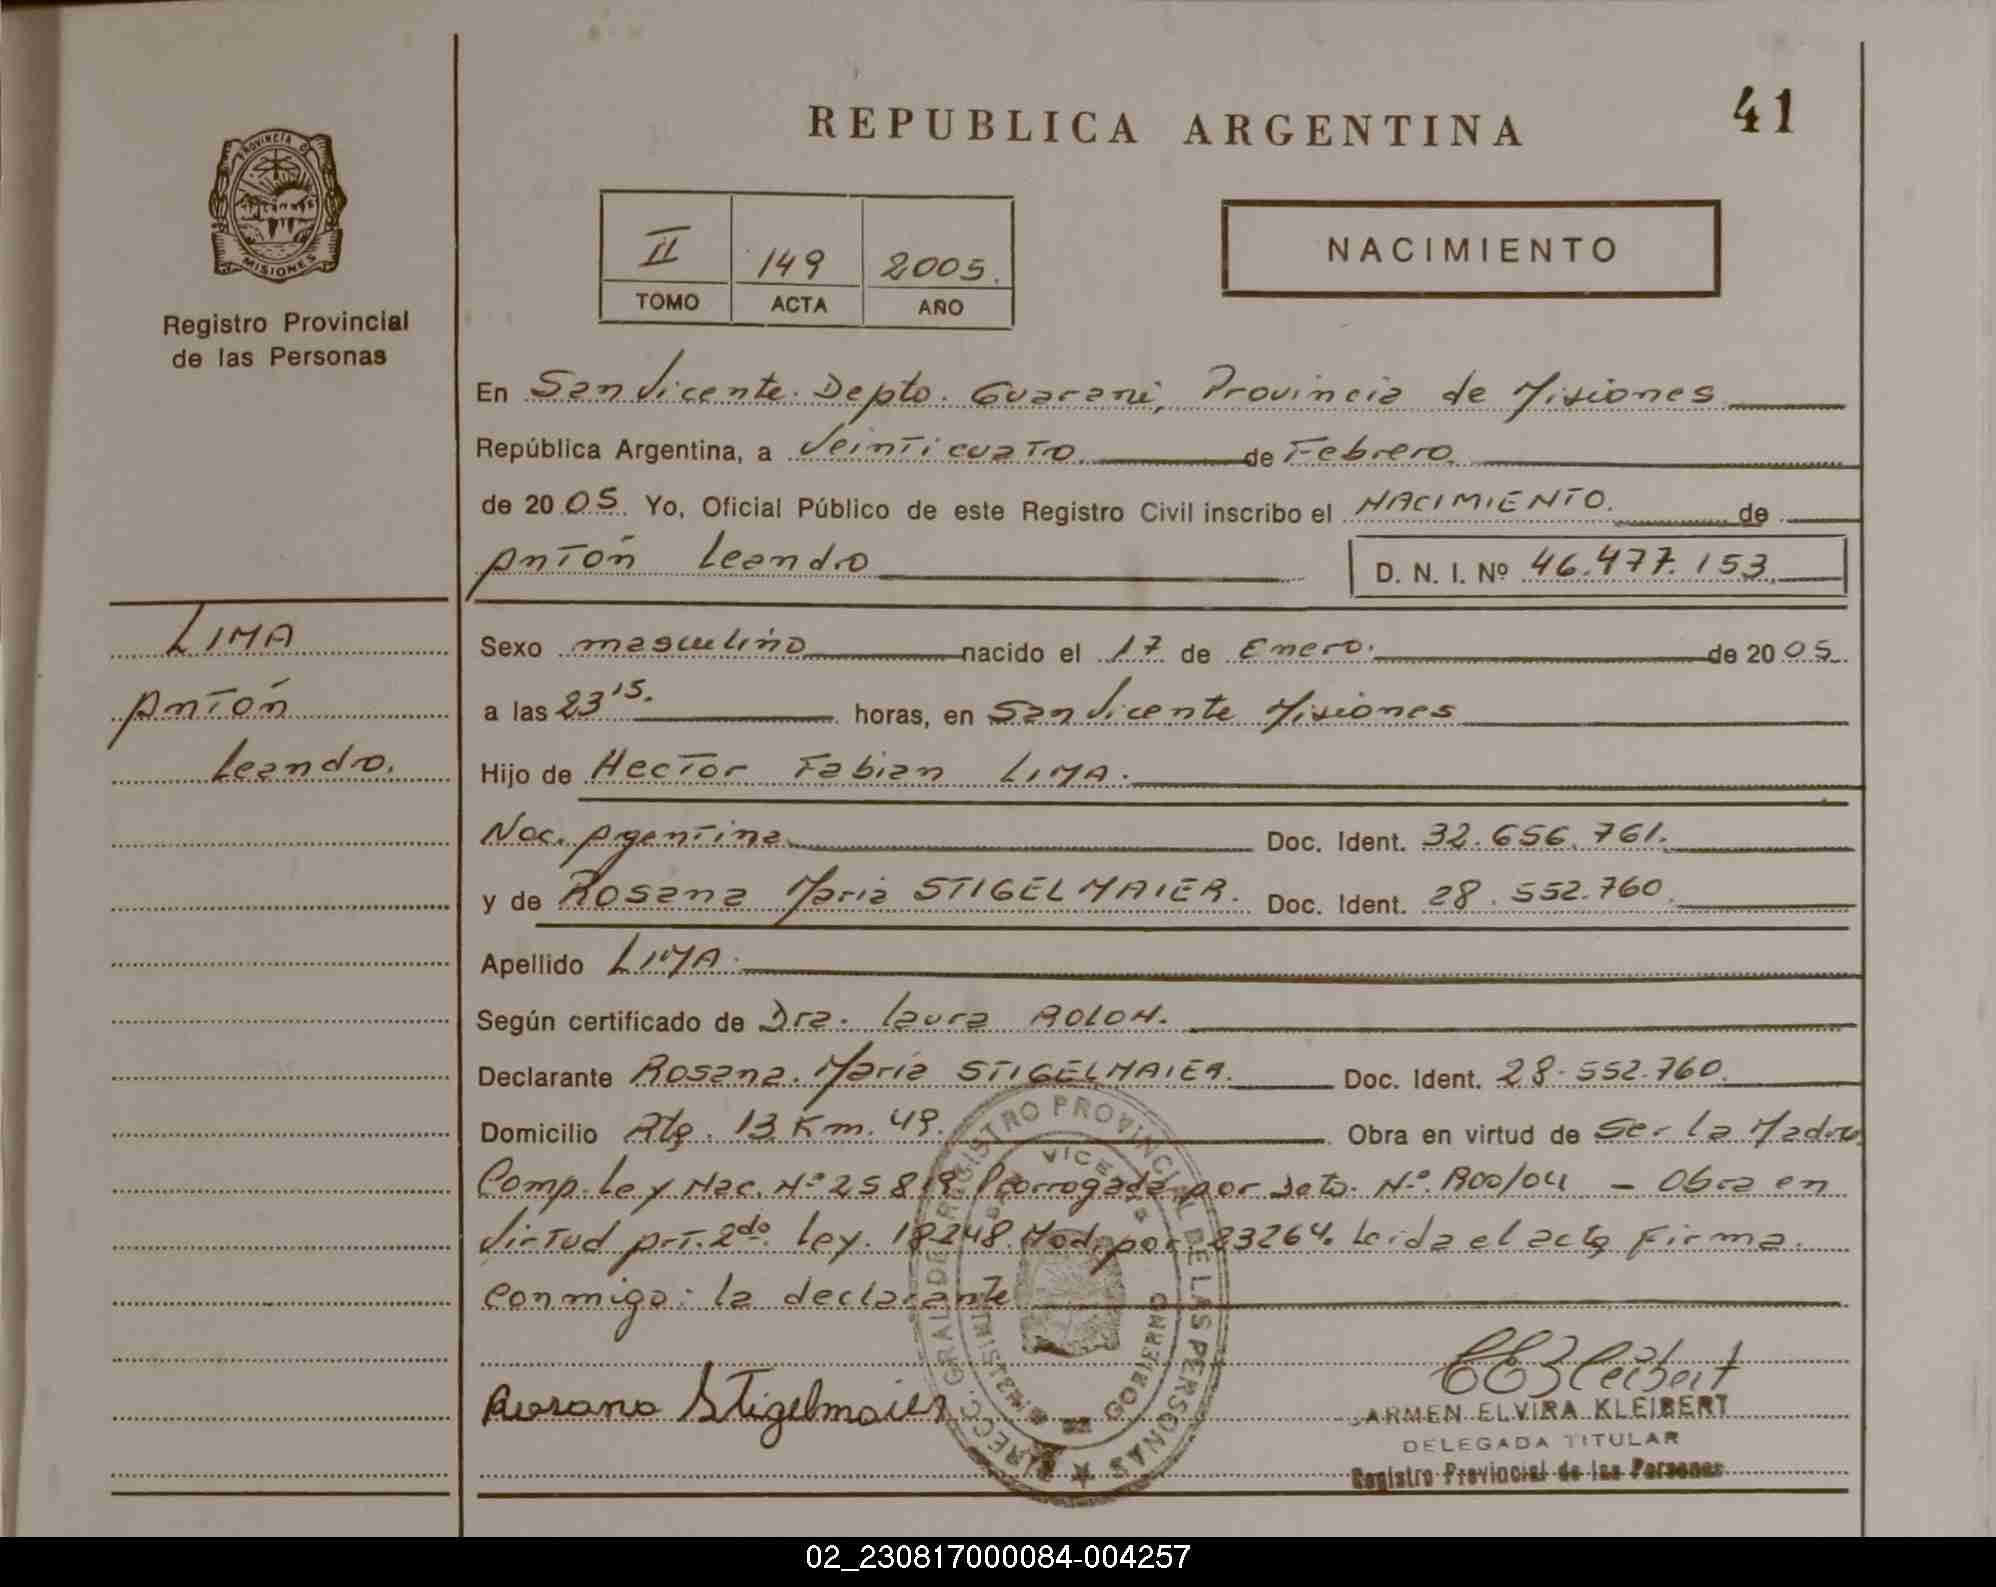 REPUBLICA ARGENTINA
41
PROVINCIA D
MISIONES
Registro Provincial
de las Personas
II 149 2005.
TOMO ACTA AÑO
NACIMIENTO
En San Vicente. Depto. Guarani, Provincia de Misiones
República Argentina, a Veinticuatro de Febrero
de 2005. Yo, Oficial Público de este Registro Civil inscribo el NACIMIENTO. de
Antón Leandro
D. N. I. Nº 46.477.153
LIMA
Antón
Leandro.
Sexo masculino nacido el 17 de Enero. de 2005
a las 23 15. horas, en San Vicente Misiones
Hijo de Hector Fabian LIMA.
Nac. Argentina Doc. Ident. 32.656.761.
y de Rosana Maria STIGELMAIER. Doc. Ident. 28.552.760
Apellido LIMA.
Según certificado de Dra. Laura ROLON.
Declarante Rosana Maria STIGELMAIER. Doc. Ident. 28.552.760.
Domicilio Rta. 13 Km. 49. Obra en virtud de Ser la Madre
Comp. Ley Nac. Nº 25819 Prorrogada por Dto. Nº. 1800/04 - Obra en
virtud Art. 2do. Ley. 18248 Mod. por 23264. Leida el acta firma
conmigo: la declarante
Rosana Stigelmaier
CEKleibert
ARMEN ELVIRA KLEIBERT
DELEGADA TITULAR
Registro Provincial de las Personas
DIRECC. GRAL DE REGISTRO PROVINCIAL DE LAS PERSONAS
MINISTE GOBIERNO
02_230817000084-004257